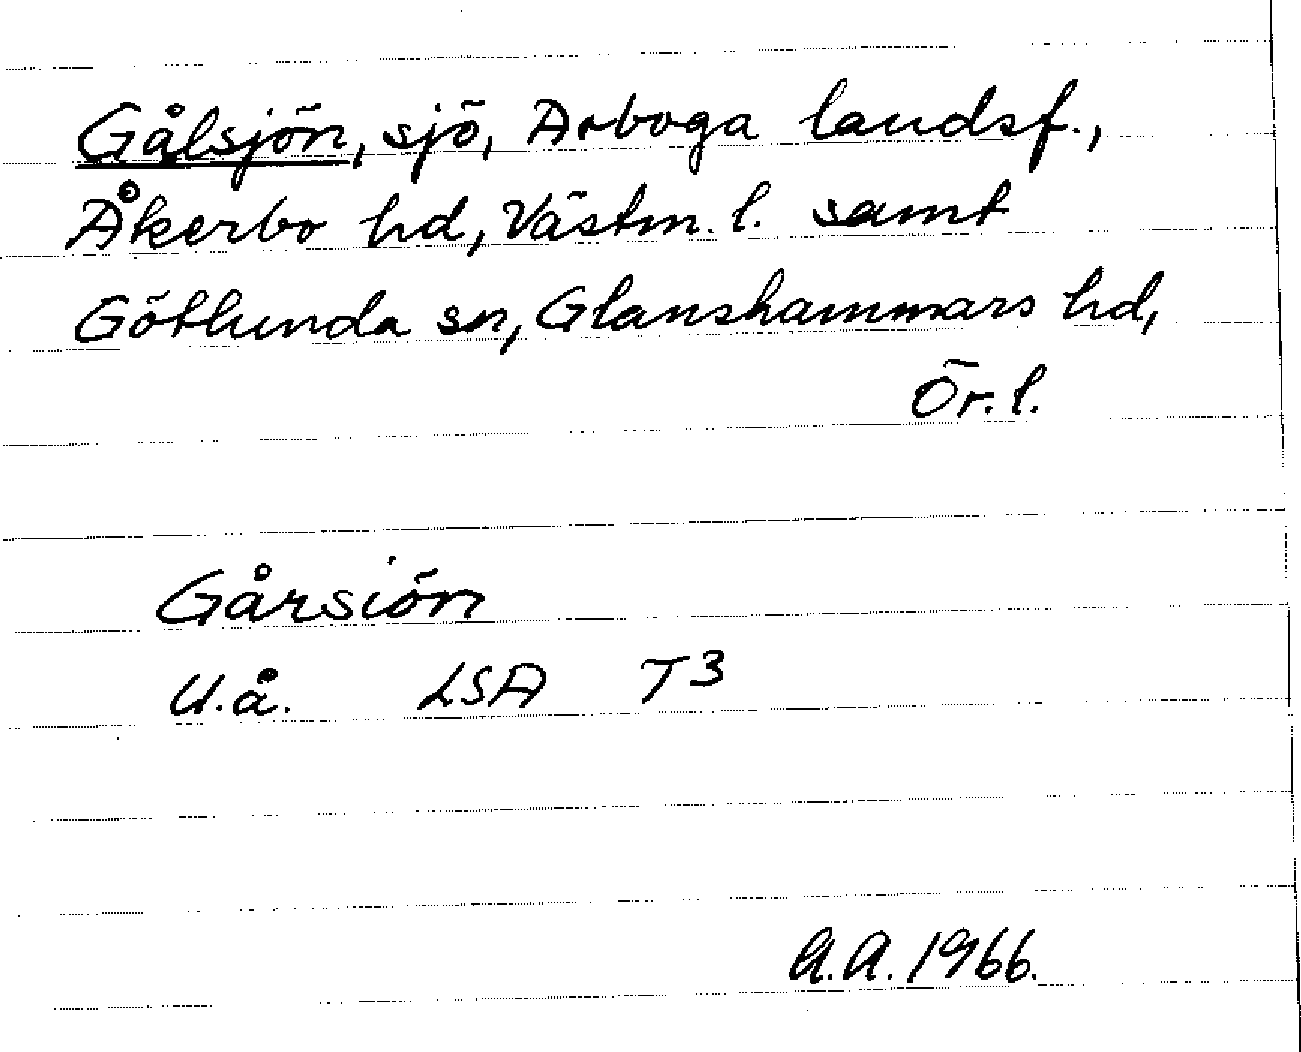 Gålsjön, sjö, Arboga landsf.,
Åkerbo hd, Västm. l. samt
Götlunda sn, Glanshammars hd,
Ör. l.
Gårsiön
U.å. LSA T3
A.A. 1966.